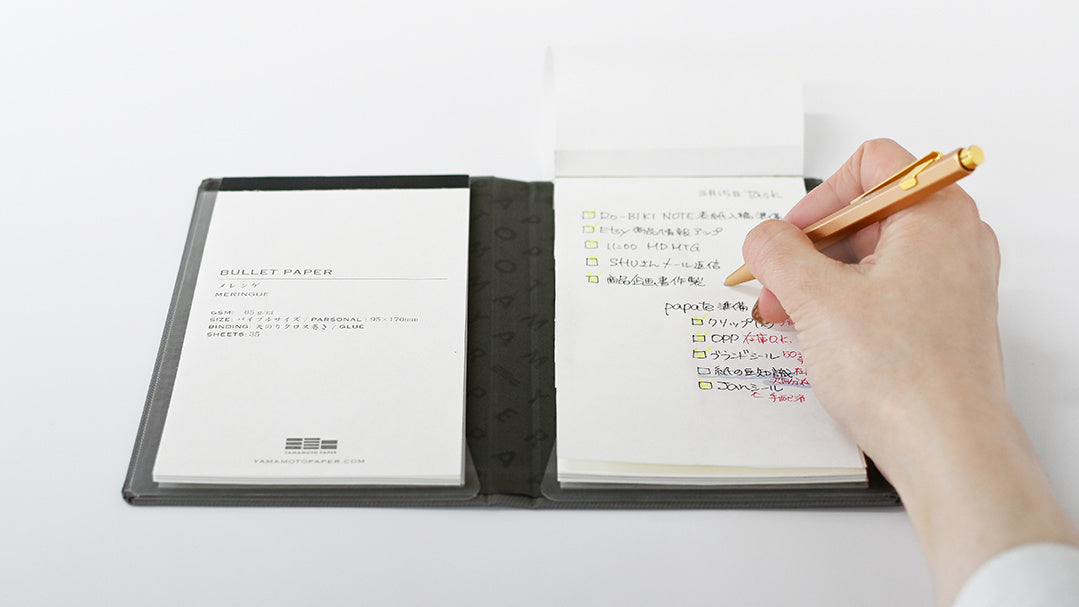 BULLET PAPER
メレンゲ
MERINGUE
GSM: 65g/㎡
SIZE: バイブルサイズ / PARSONAL : 95×170mm
BINDING: 天のりクロス巻き / GLUE
SHEETS: 35
YAMAMOTO PAPER
YAMAMOTOPAPER.COM
3月15日 Task
Ro-BIKI NOTE 表紙入稿準備
Etsy 商品情報アップ
11:00 HD MTG
SHUさんメール返信
商品企画書作製
papate 準備
クリップ
OPP 在庫O.K.
ブランドシール 50
紙の豆知識
Janシール